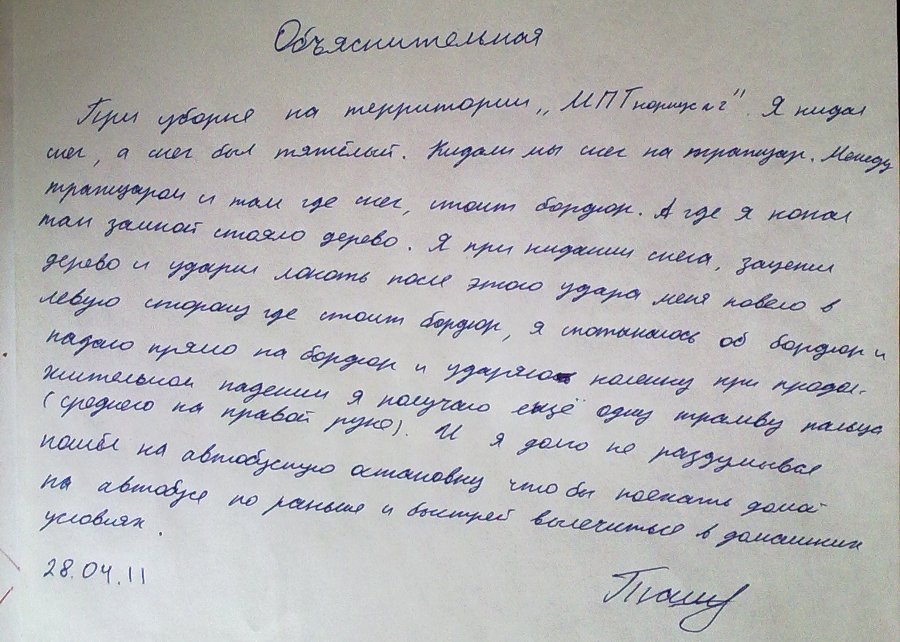 Объяснительная
При уборке на территории „МПТ корпус №2". Я кидал
снег, а снег был тяжёлый. Кидали мы снег на тратуар. Между
тратуаром и там где снег, стоит бордюр. А где я копал
там замной стояло дерево. Я при кидании снега, зацепил
дерево и ударил локоть после этого удара меня повело в
левую сторону где стоит бордюр, я спотыкаюсь об бордюр и
падаю прямо на бордюр и ударяю коленку при продол-
жительном падении я получаю ещё одну трамву пальца
(среднего на правой руке). И я долго не раздумывая
пошёл на автобусную остановку что бы поехать домой
на автобусе по раньше и быстрей вылечиться в домашних
условиях.
28.04.11